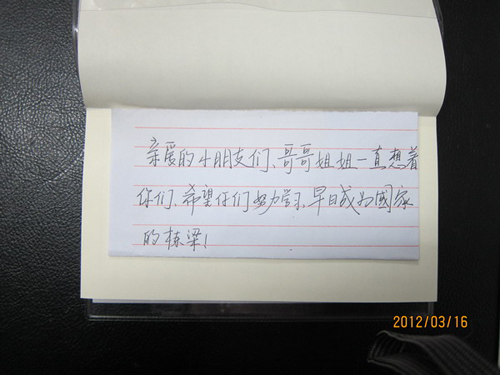 亲爱的小朋友们、哥哥姐姐一直想着
你们、希望你们努力学习、早日成为国家
的栋梁！
2012/03/16